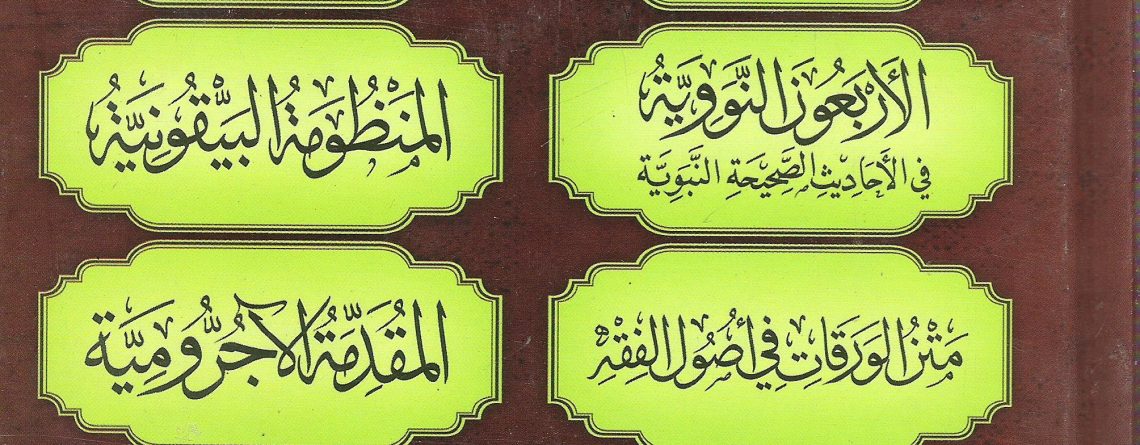 الْأَرْبَعُونَ النَّوَوِيَّةُ
فِي الْأَحَادِيثِ الصَّحِيحَةِ النَّبَوِيَّةِ
الْمَنْظُومَةُ الْبَيْقُونِيَّةُ
مَتْنُ الْوَرَقَاتِ فِي أُصُولِ الْفِقْهِ
الْمُقَدِّمَةُ الْآجُرُّومِيَّةُ